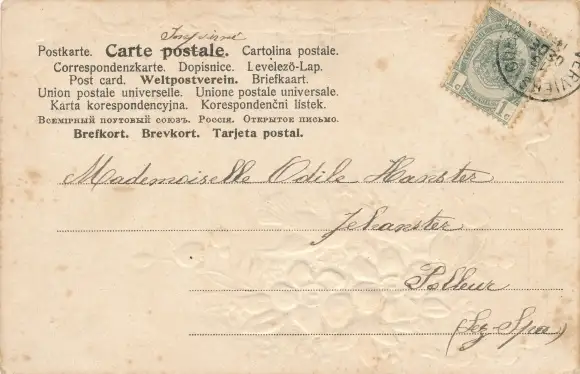 Imprimé
Postkarte. Carte postale. Cartolina postale.
Correspondenzkarte. Dopisnice. Levelező-Lap.
Post card. Weltpostverein. Briefkaart.
Union postale universelle. Unione postale universale.
Karta korespondencyjna. Korespondenční lístek.
Всемірный почтовый союзъ. Россія. Открытое письмо.
Brefkort. Brevkort. Tarjeta postal.
Mademoiselle Odile Hanster
Jehanster
Polleur
(Lez-Spa)